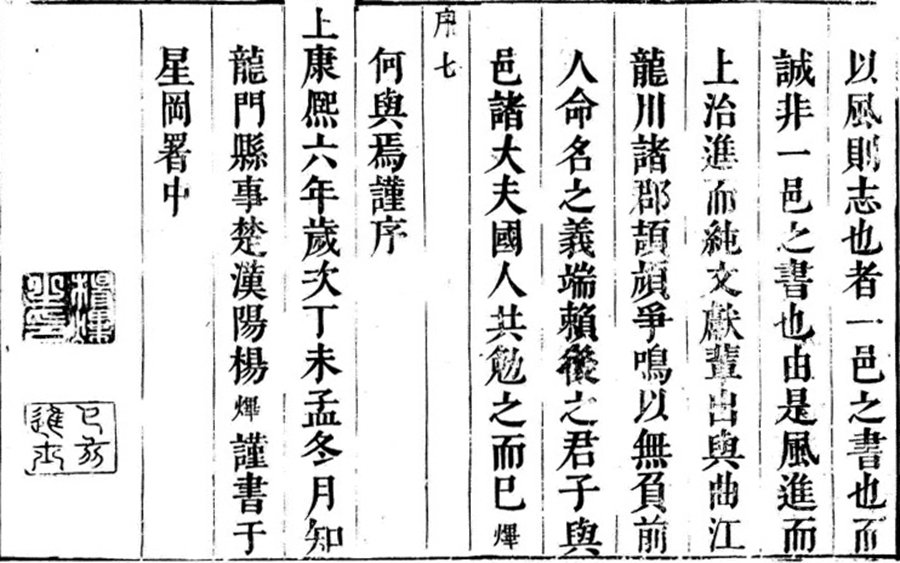 以風則志也者一邑之書也而
誠非一邑之書也由是風進而
上治進而純文獻輩出與曲江
龍川諸郡頡頏爭鳴以無負前
人命名之義端賴後之君子與
邑諸大夫國人共勉之而已
序七
何與焉謹序
上康熙六年歲次丁未孟冬月知
龍門縣事楚漢陽楊 謹書于
星岡署中
楊 之印
己亥進士